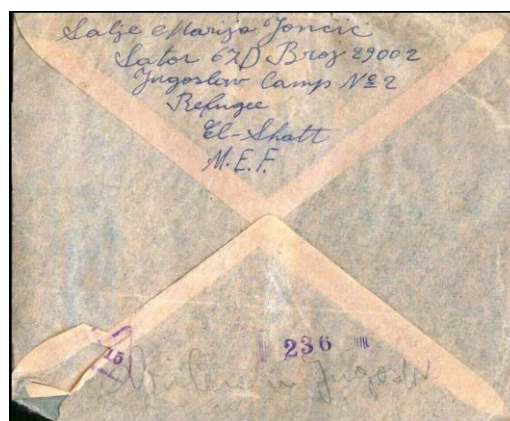 Salje Marija Joncic
Sator 67D Broj 29002
Jugoslav Camp № 2
Refugee
El-Shatt
M.E.F.
15
236
Written in Jugoslav